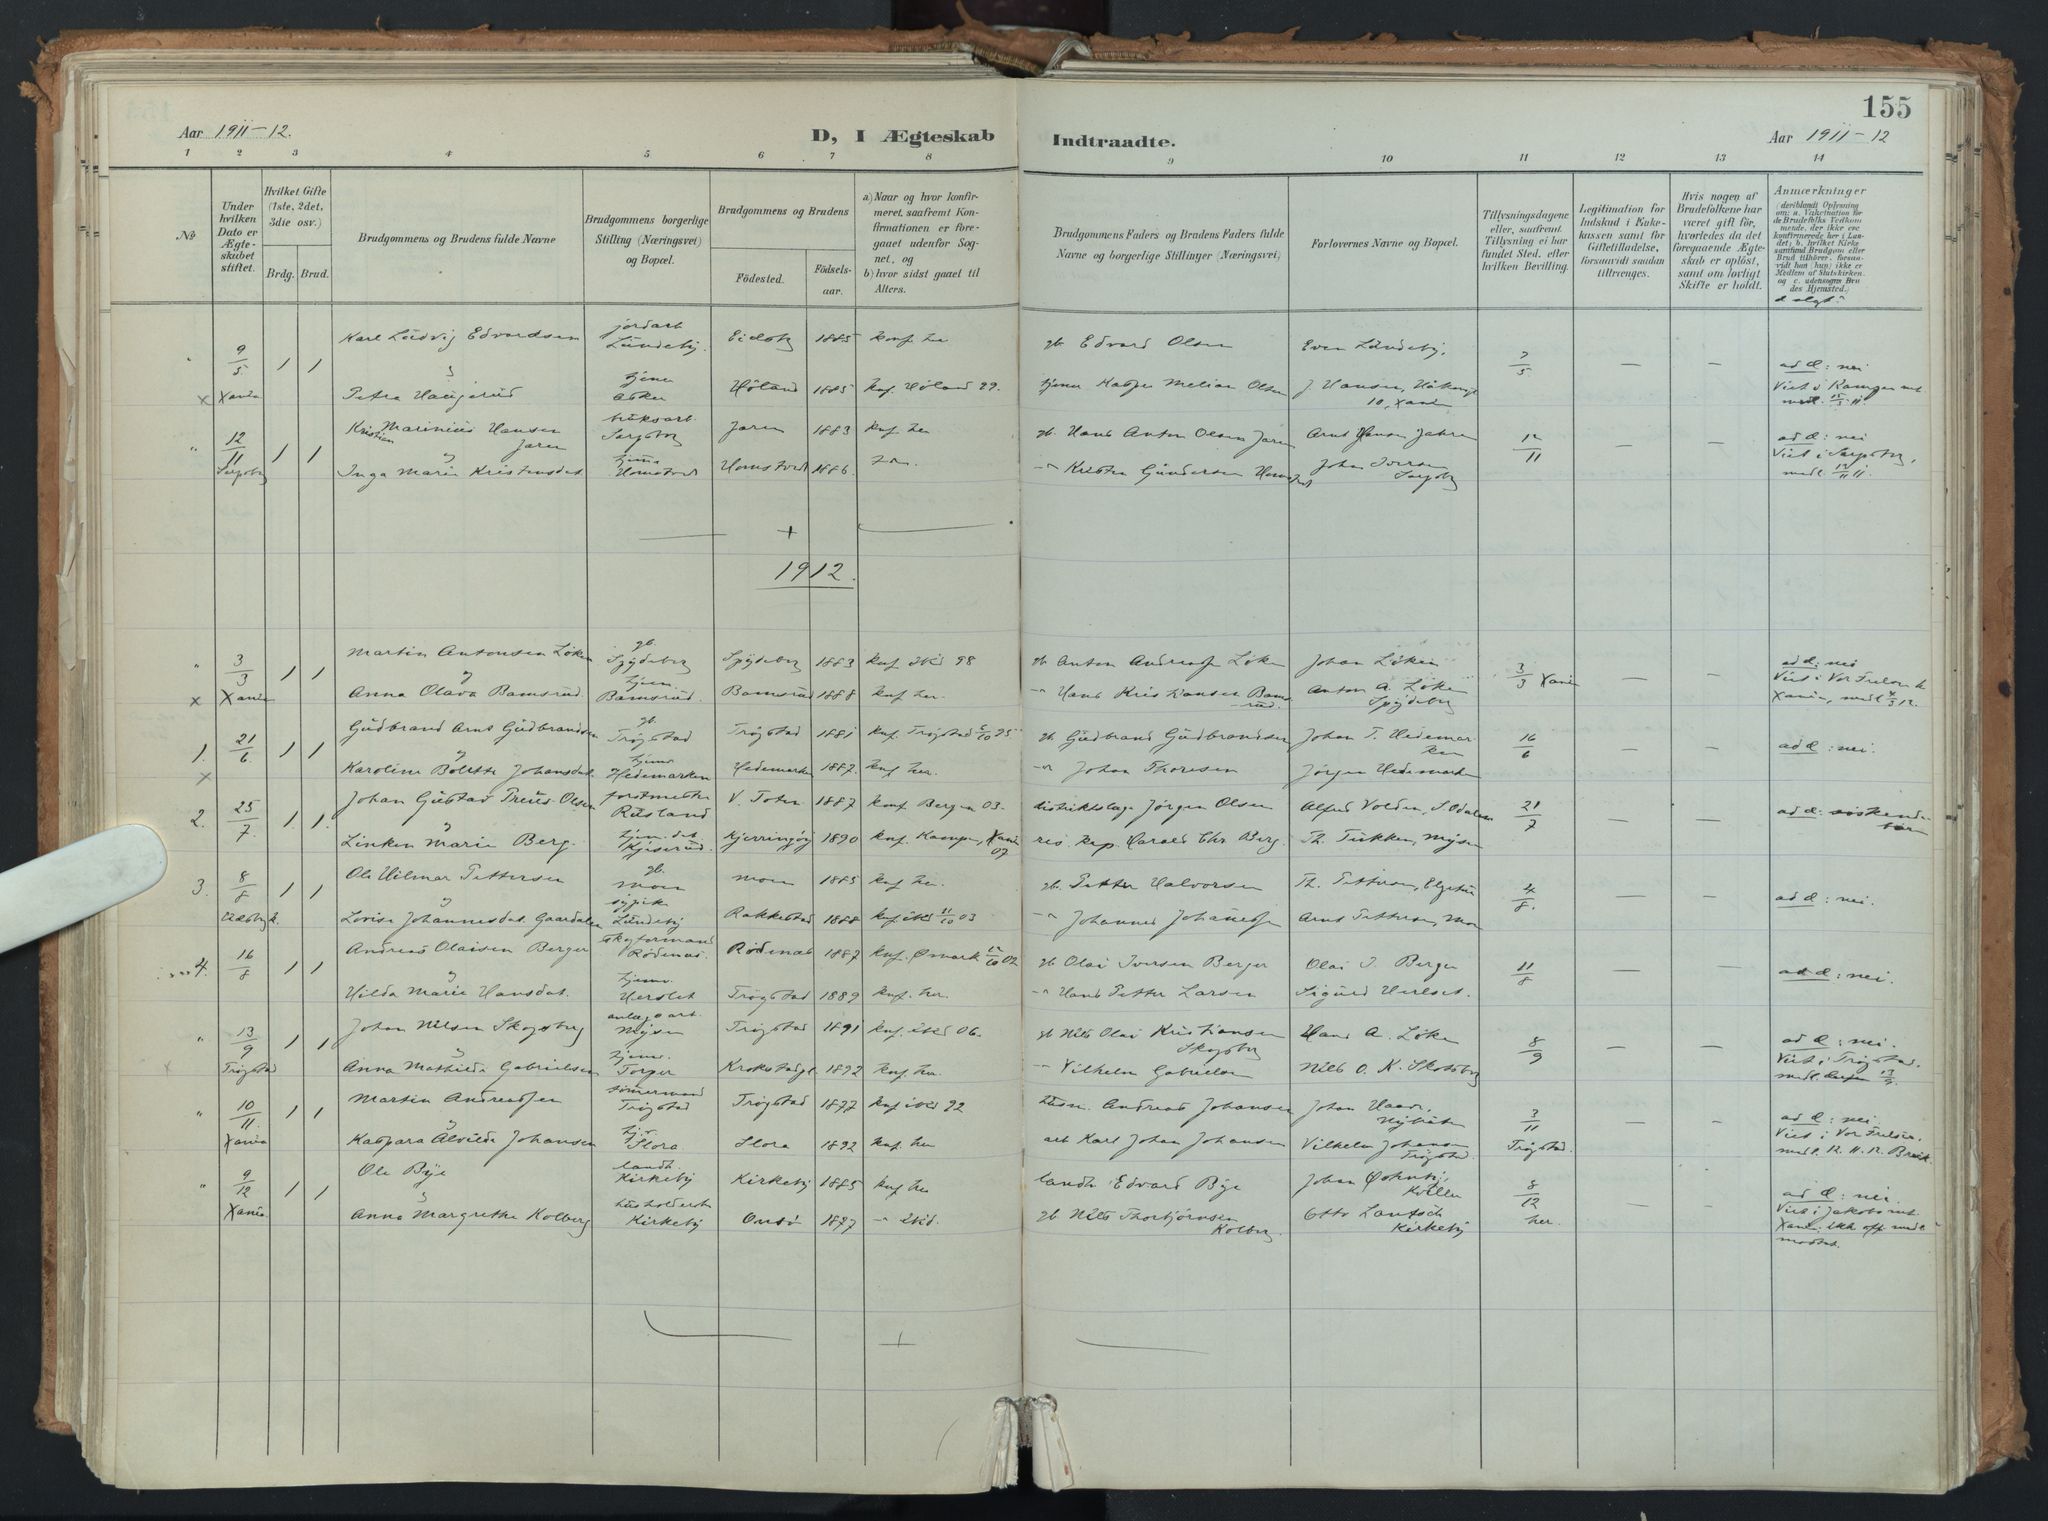 155
Aar 1911-12.
D, I Ægteskab Indtraadte.
Aar 1911-12
1 2 3 4 5 6 7 8 9 10 11 12 13 14
No
Under hvilken Dato er Ægteskabet stiftet.
Hvilket Gifte (1ste, 2det, 3die osv.)
Brdg. Brud.
Brudgommens og Brudens fulde Navne
Brudgommens borgerlige Stilling (Næringsvei) og Bopæl.
Brudgommens og Brudens
Födested. Födselsaar.
a) Naar og hvor konfirmeret, saafremt Konfirmationen er foregaaet udenfor Sognet, og
b) hvor sidst gaaet til Alters.
Brudgommens Faders og Brudens Faders fulde Navne og borgerlige Stillinger (Næringsvei)
Forlovernes Navne og Bopæl.
Tillysningsdagene eller, saafremt Tillysning ei har fundet Sted, efter hvilken Bevilling.
Legitimation for Indskud i Enkekassen samt for Giftetilladelse, forsaavidt saadan tiltrænges.
Hvis nogen af Brudefolkene har været gift før, hvorledes da det foregaaende Ægteskab er opløst, samt om lovligt Skifte er holdt.
Anmærkninger
(deriblandt Oplysning om: a. Vakcination for de Brudefolks Vedkommende, der ikke ere konfirmerede her i Landet; b. hvilket Kirkesamfund Brudgom eller Brud tilhører, forsaavidt han (hun) ikke er Medlem af Statskirken, og c. udensogns Brudes Hjemsted.)
" 9/5 1 1 Karl Ludvig Edvardsen jordarb Lundeby. Eidsbg 1885 konf her gb. Edvard Olsen Even Lundeby, 7/5 — — ad d: nei
x Xania Petra Haugerud tjener Høland 1885 knf. Høland 99. Kasper Melian Olsen J. Hansen, 10, Xania
" 12/11 1 1 Kristian Marinius Hansen Jaren bruksarb. Sarpsborg Jaren 1883 knf her gb. Hans Anton Olsen Jaren Arnt Hansen Jahren 12/11 ad d: nei
Sarpsborg Inga Marie Kristensdat. Homstvedt Homstvedt 1886. Kristen Gundersen Johan Iversen Sarpsbg Viet i Sarpsborg, medl. 12/11 11.
1912.
" 3/3 1 1 Martin Antonsen Løken gb. Spydeberg Spydeberg 1883 knf. ibid 98 gb. Anton Andreass. Løken Johan Løken 3/3 Xania — — ad d: nei
x Xania & Anna Olava Bamsrud. tjen. Bamsrud. Bamsrud 1888 knf her. Hans Kristiansen Bamsrud. Anton A. Løken Spydeberg Viet i Vor Frelsers k. Xania, medl. 4/3 12.
1. 21/6 1 1 Gudbrand Arnt Gudbrandsen gb. Trøgstad Trøgstad 1881 knf. Trøgstad 6/10 95 gb Gudbrand Gudbrandsen Johan T. Hedemarken 16/6 — — ad d: nei.
x & Karoline Bolette Johansdat. tjen. Hedemarken Hedemarken 1887. knf. her. Johan Thoresen Jørgen Hedemarken
2. 25/7. 1 1. Johan Gustad Preus Olsen forstmester Rusland V. Toten 1887 konf Bergen 03. distriktslæge Jørgen Olsen Alfred Volden, S. Odalen 21/7 — — ad d: søskendebarn
& Linken Marie Berg. Kjerringøy 1890 knf. Kampen, Xania 07 res. kap. Harald Chr. Berg. Th. Tukken, Mysen
3. 8/8 1 1 Ole Hilmar Pettersen gb. Moen Moen 1885 knf. her. gb. Petter Halvorsen Th. Pettersen, 4/8. — — ad d: nei.
& Lovise Johannesdat. Gaardalen sypike Lundeby Rakkestad 1888 knf ibid 11/10 03 Johannes Johanness Arnt Pettersen, Moen
4. 16/8 1 1 Andreas Olaisen Berger skogformand Rødenes. Rødenes 1887 knf. Ømark 12/10 02 gb Olai Iversen Berger Olai I. Berger 11/8 — — ad d: nei.
& Hilda Marie Hansdat. tjen. Herslet Trøgstad 1889 knf. her. Hans Petter Larsen Sigurd Herlset.
" 13/9 1 1 Johan Nilsen Skogsberg anlægsarb. Mysen Trøgstad 1891 knf. ibid 06. gb Nils Olai Kristiansen Skogsberg Hans A. Løken 8/9 — — ad d: nei.
Trøgstad & Anna Mathilde Gabrielsen tjen. Torper 1892 knf. her. Vilhelm Gabrielsen Nils O. K. Skotsberg Viet i Trøgstad. 13/9.
" 10/11. 1 1 Martin Andreassen tømmermand Trøgstad Trøgstad 1877 knf ibid 92 husm. Andreas Johansen Johan 3/11 — — ad d: nei.
Xania & Kaspara Alvilde Johansen Slora Slora 1892 knf. her arb Karl Johan Johansen Vilhelm Johansen Trøgstad Trøgstad. Viet i Vor Frelser. medl. 12. 11. 12.
" 9/12 1 1 Ole Bye landh. Kirkeby Kirkeby 1885 knf her landh. Edvard Bye Johan 8/12 — — ad d: nei.
Xania & Anna Margrethe Kolberg husholderske Kirkeby Onsø 1877 ibid. gb. Nils Thorbjørnsen Kolberg Otto Lantsch Kirkeby her. Viet i Jakobs